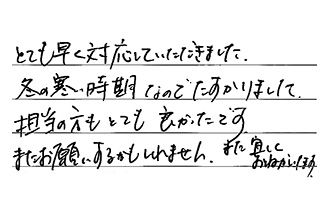 とても早く対応していただきました.
冬の寒い時期なのでたすかりました.
担当の方もとても良かったです
またお願いするかもしれません. また宜しく
おねがいします.